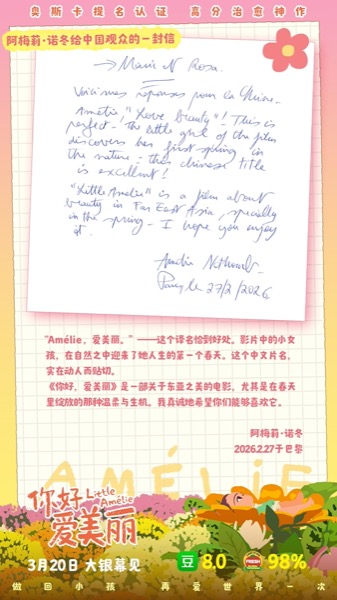 奥斯卡提名认证 高分治愈神作
阿梅莉·诺冬给中国观众的一封信
→ Marie N Rosa.
Voici mes réponses pour la Chine.
Amélie, "Love beauty"! This is
perfect - The little girl of the film
discovers her first spring in
the nature: this chinese title
is excellent!
"Little Amélie" is a film about
beauty in Far East Asia, specially
in the spring - I hope you enjoy
it.
Amélie Nothomb
27/2/2026
"Amélie,爱美丽。"——这个译名恰到好处。影片中的小女
孩,在自然之中迎来了她人生的第一个春天。这个中文片名,
实在动人而贴切。
《你好,爱美丽》是一部关于东亚之美的电影,尤其是在春天
里绽放的那种温柔与生机。我真诚地希望你们能够喜欢它。
阿梅莉·诺冬
2026.2.27于巴黎
AMÉLIE
你好
Little Amélie
爱美丽
3月20日 大银幕见
豆 8.0 FRESH 98%
做回一次小孩 再爱世界一次